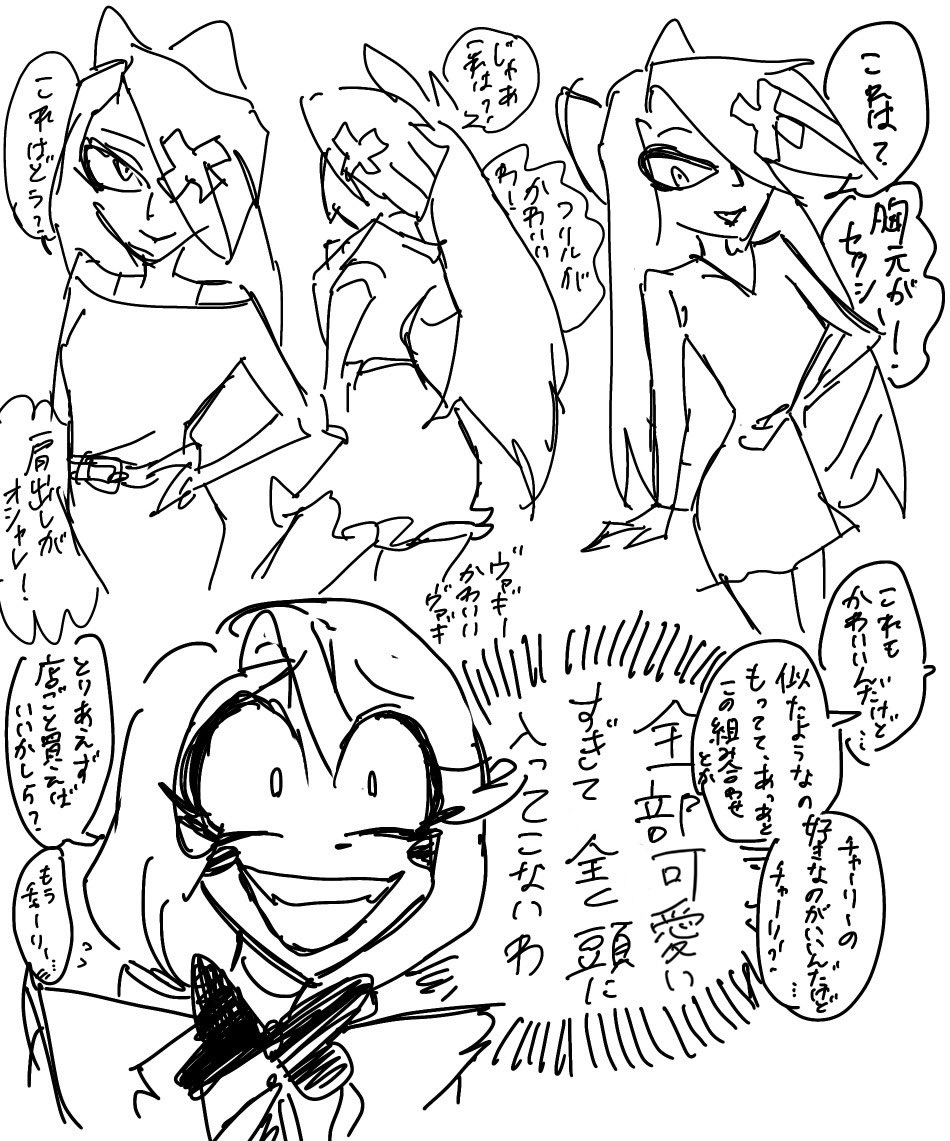 これは?
胸元が
セクシー!
じゃあ
これは?
フリルが
かわいい
わ!
これはどう?
肩出しが
オシャレ!
ヴァギー
かわいい
ヴァギ
これも
かわいいんだけど…
似たようなの
もってて、あっあと
この組み合わせ
とか
チャーリーの
好きなのがいいんだけど
チャーリー?…
全部可愛い
すぎて 全く頭に
入ってこないわ
とりあえず
店ごと買えば
いいかしら?
もう
チャーリー…